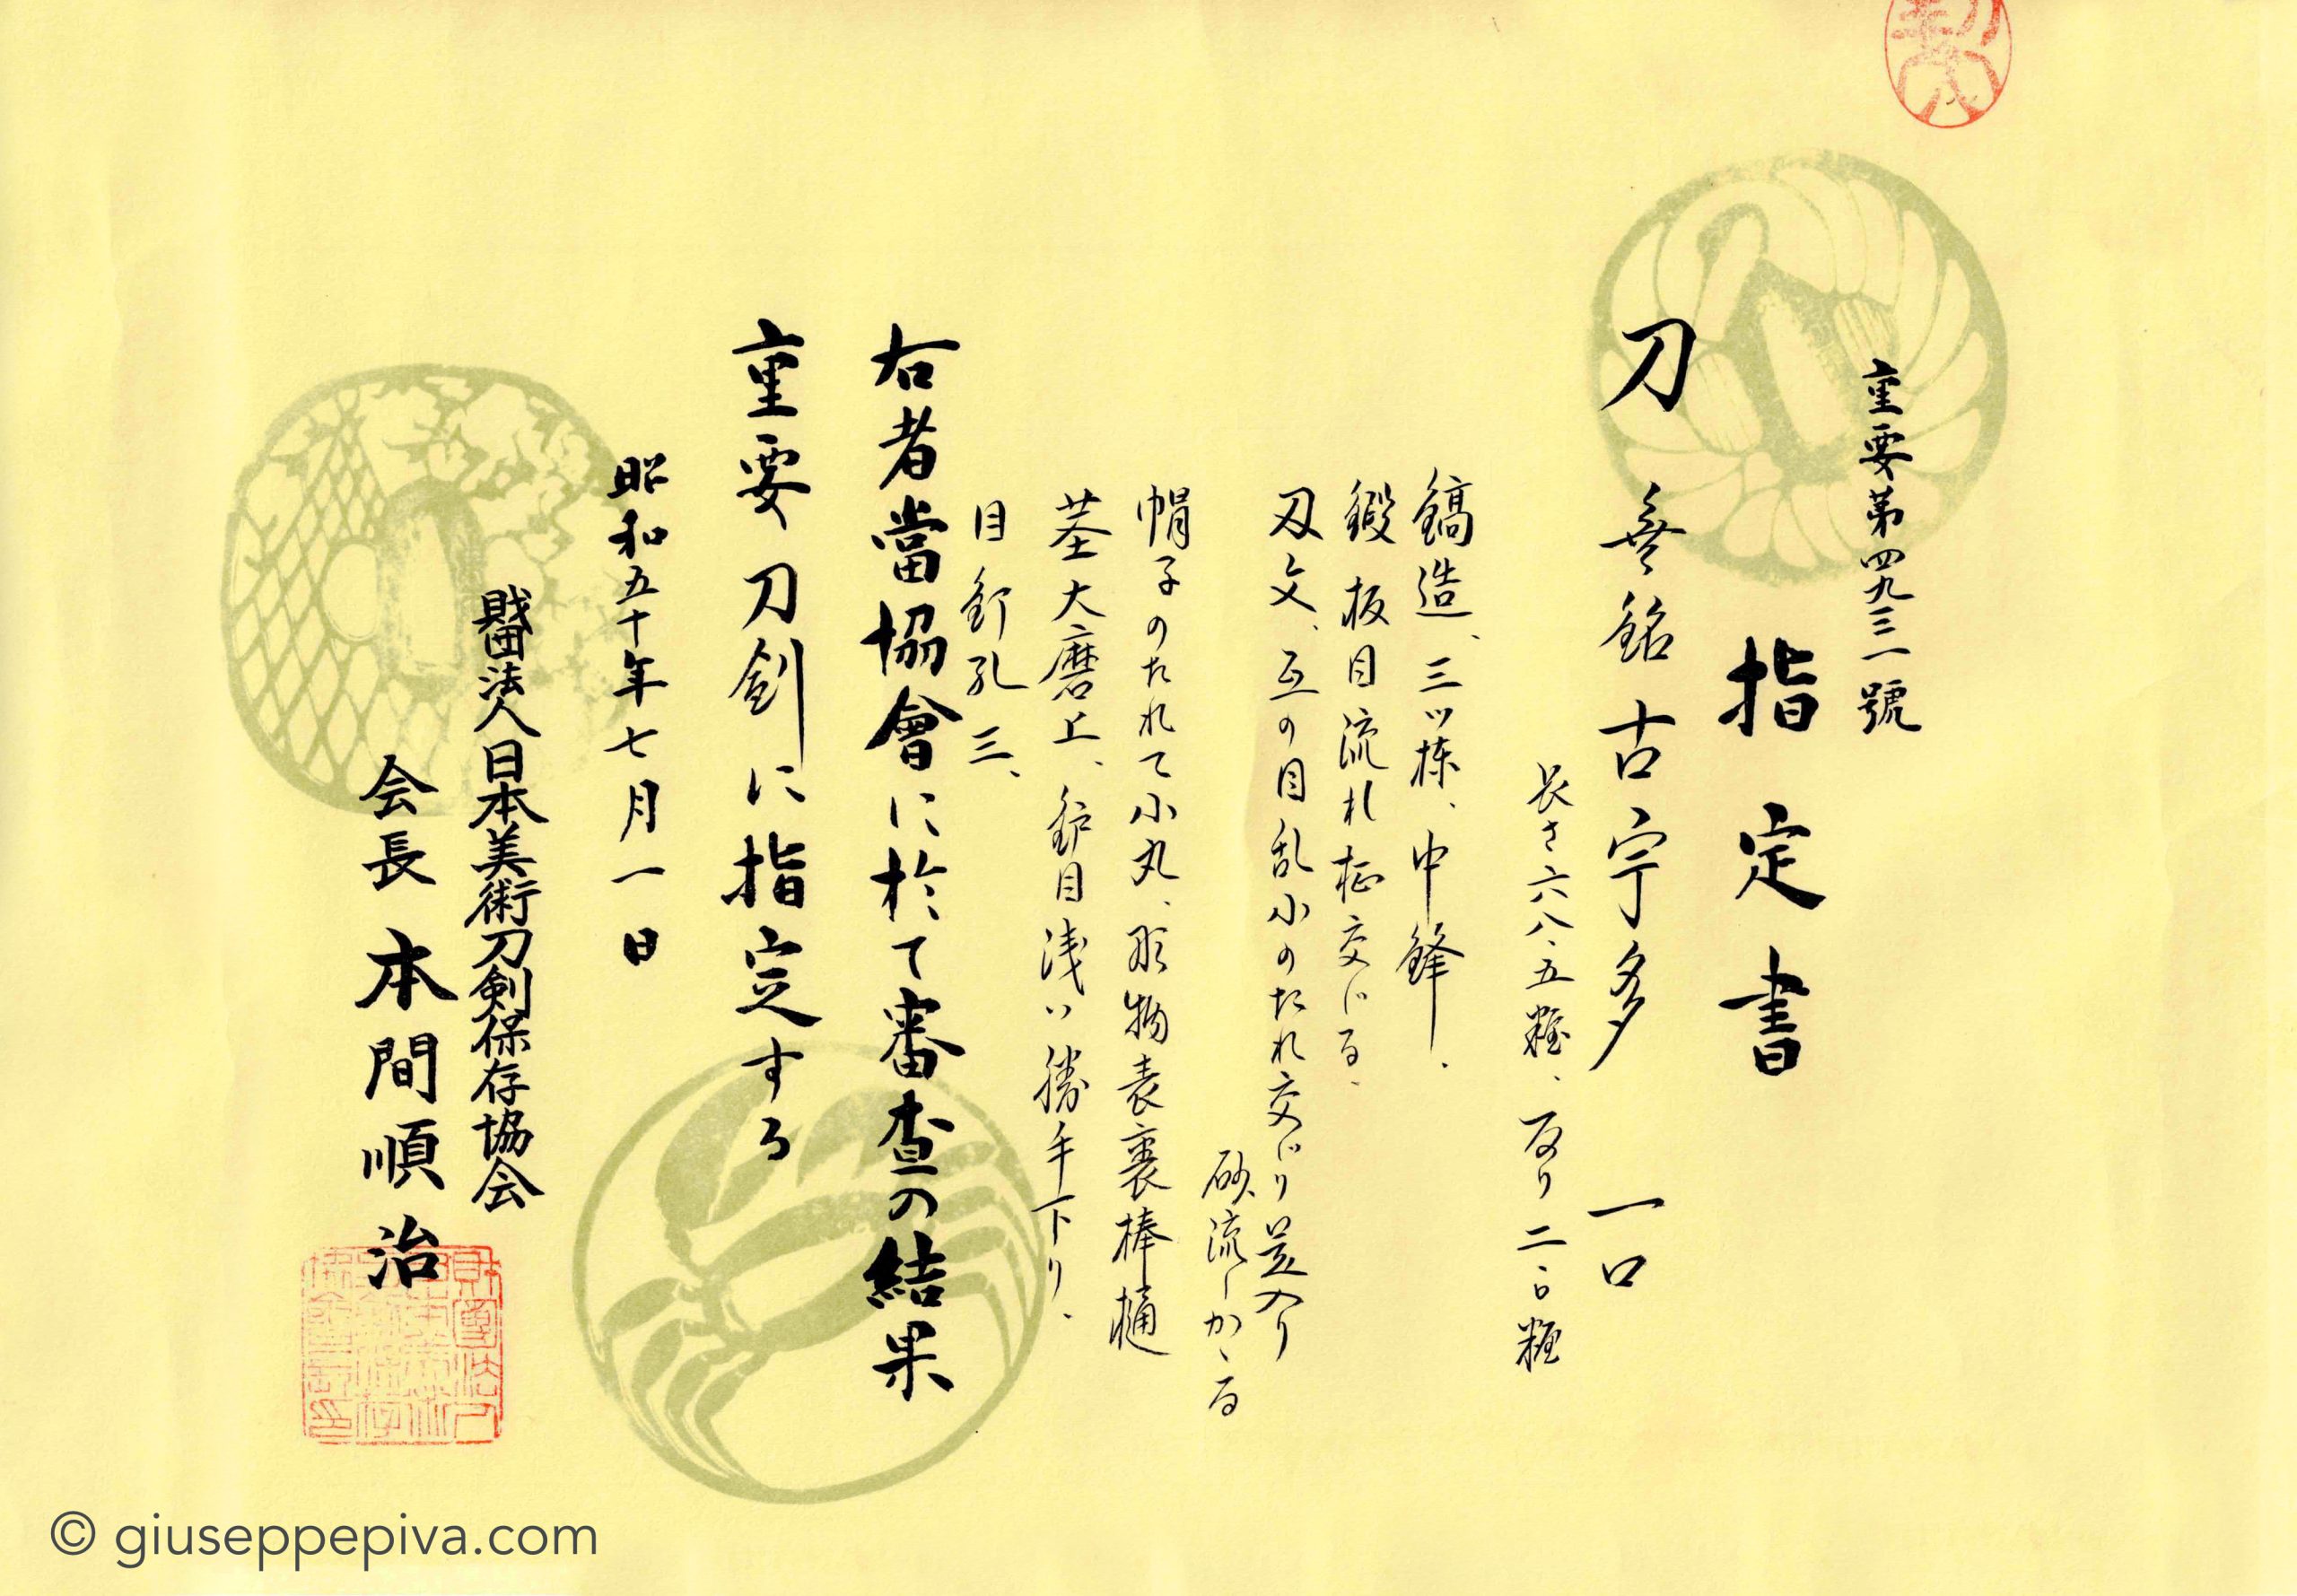 重要第四九三一號
指定書
刀 無銘 古宇多 一口
長さ 六八、五糎、反り 二、二糎
鎬造、三ツ棟、中鋒、
鍛 板目流れ柾交じる、
刃文、互の目乱小のたれ交じり足入り
砂流しかゝる
帽子のたれて小丸、彫物表裏棒樋
茎大磨上、鑢目浅い勝手下り、
目釘孔三、
右者當協會に於て審査の結果
重要刀剣に指定する
昭和五十年七月一日
財団法人日本美術刀剣保存協会
会長 本間順治
© giuseppepiva.com